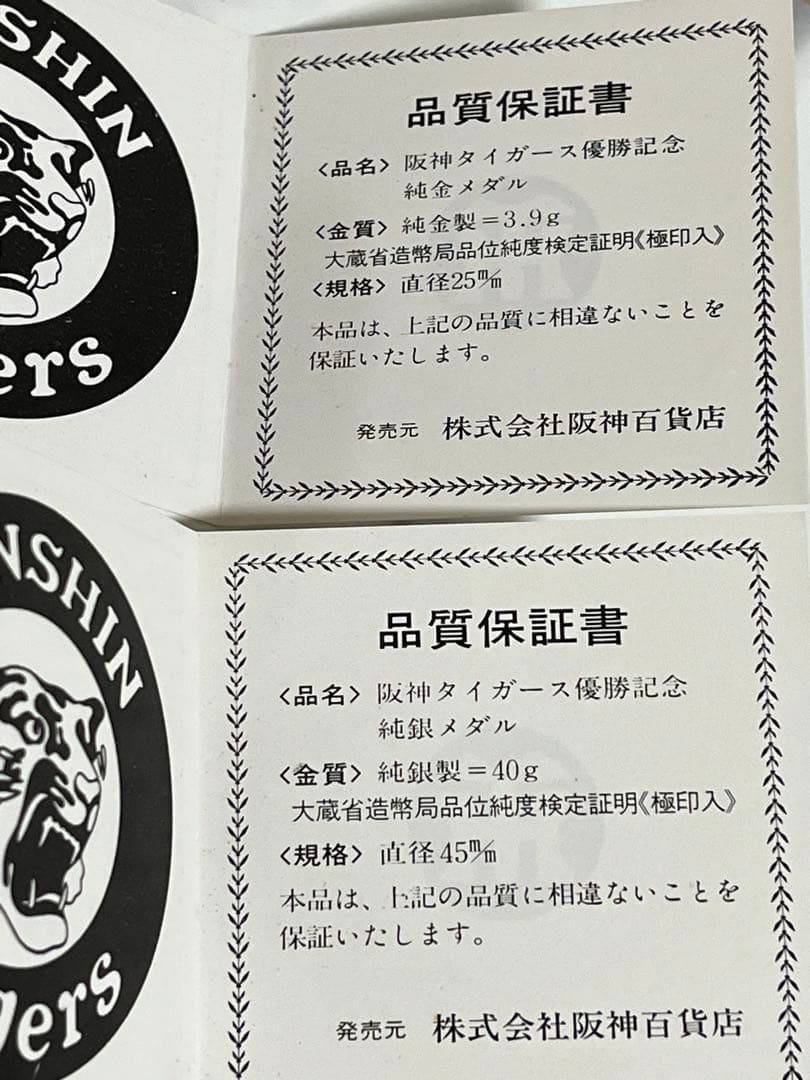 NSHIN
ers
品質保証書
〈品名〉 阪神タイガース優勝記念
純金メダル
〈金質〉 純金製＝3.9g
大蔵省造幣局品位純度検定証明《極印入》
〈規格〉 直径25㎜
本品は、上記の品質に相違ないことを
保証いたします。
発売元 株式会社阪神百貨店
NSHIN
gers
品質保証書
〈品名〉 阪神タイガース優勝記念
純銀メダル
〈金質〉 純銀製＝40g
大蔵省造幣局品位純度検定証明《極印入》
〈規格〉 直径45㎜
本品は、上記の品質に相違ないことを
保証いたします。
発売元 株式会社阪神百貨店